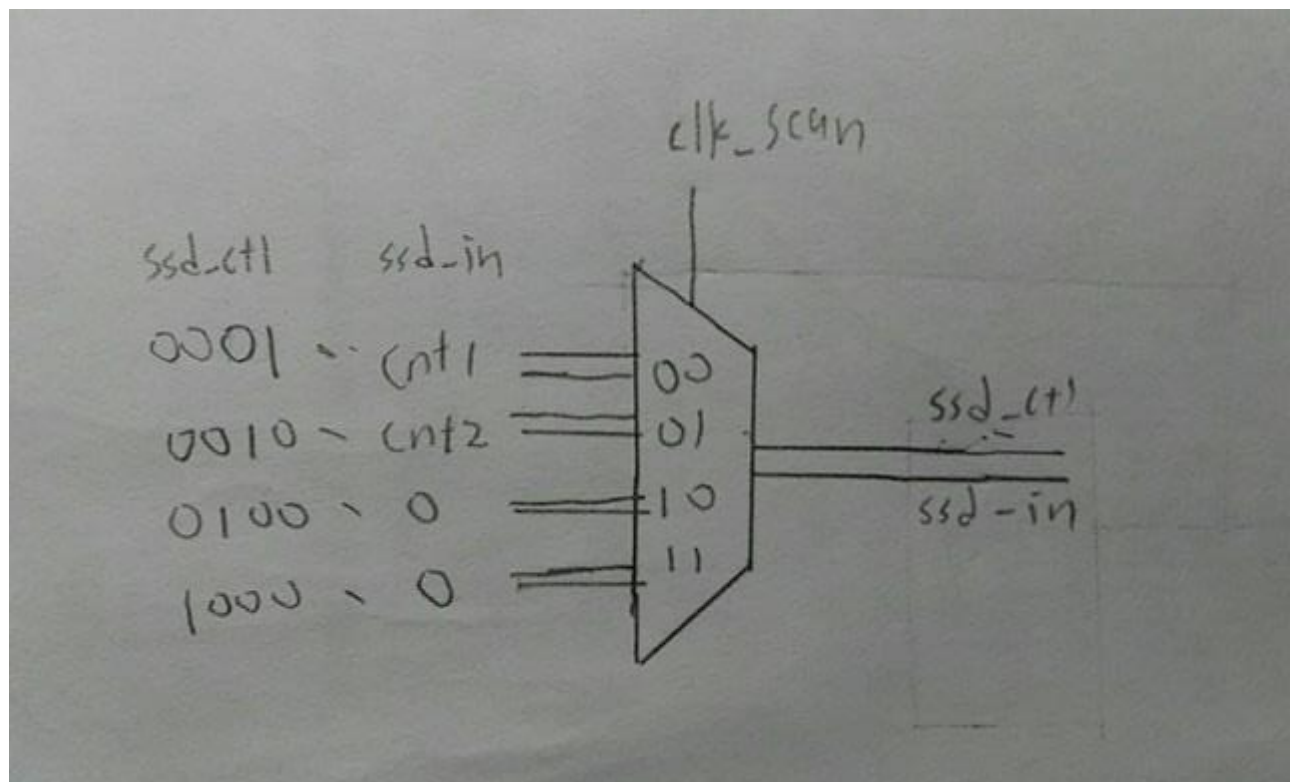 clk_scan
ssd_ctl ssd_in
0001 cnt1 00
0010 cnt2 01
0100 0 10
1000 0 11
ssd_ctl
ssd-in